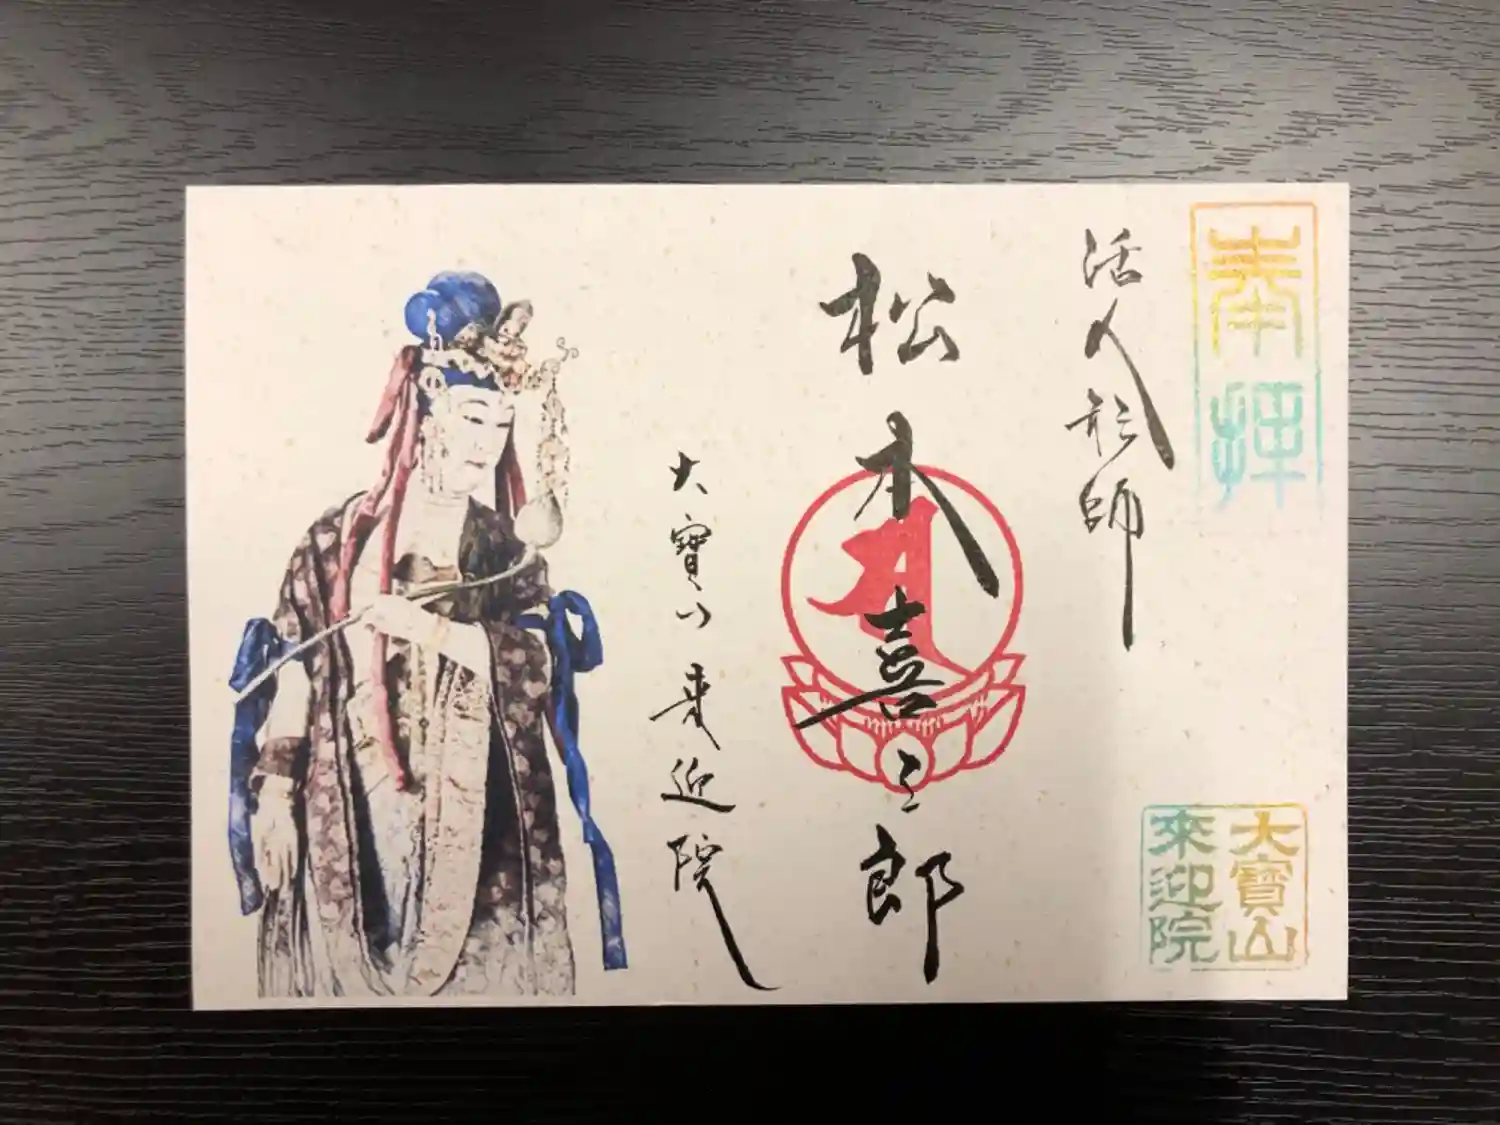 奉拝
活人形師
松本喜三郎
大寶山来迎院
大寶山
來迎院